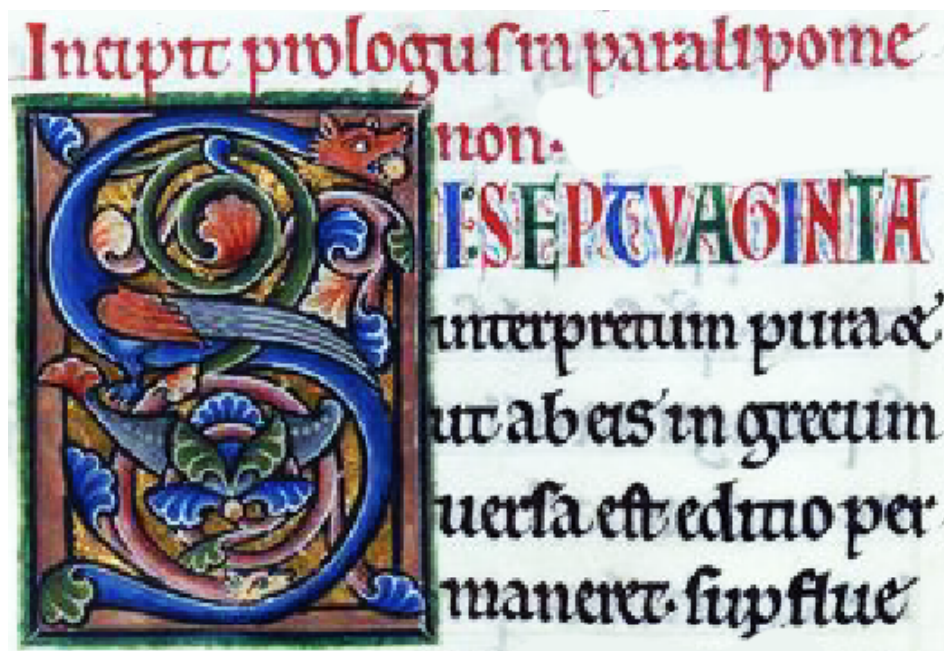 Incipit prologus in paralipome
non.
SI: SEPTVAGINTA
interpretum pura &
ut ab eis in grecum
uersa est editio per
maneret. supflue